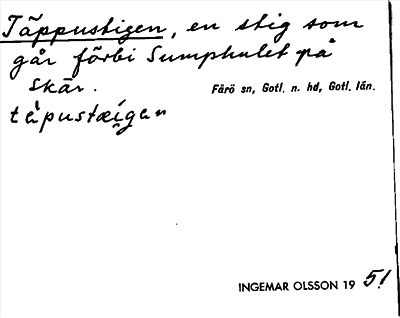 Täppustigen, en stig som
går förbi Sumphulet på
Skär.
Fårö sn, Gotl. n. hd, Gotl. län.
tɛ̀pustæi̯gɛn
INGEMAR OLSSON 19 51